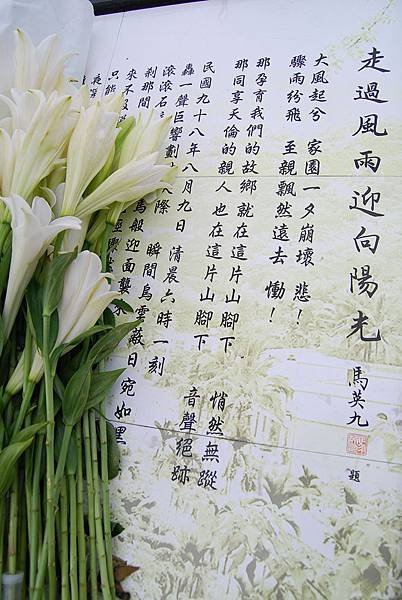 走過風雨迎向陽光
馬英九
題
大風起兮 家園一夕崩壞 悲!
驟雨紛飛 至親飄然遠去 慟!
那孕育我們的故鄉就在這片山腳下
那同享天倫的親人 也在這片山腳下
悄然無蹤
音聲絕跡
民國九十八年八月九日 清晨六時一刻
轟一聲巨響劃 際 瞬間烏雲蔽日宛如黑
滾滾石 般迎面襲來
剎那間
來不及
只能